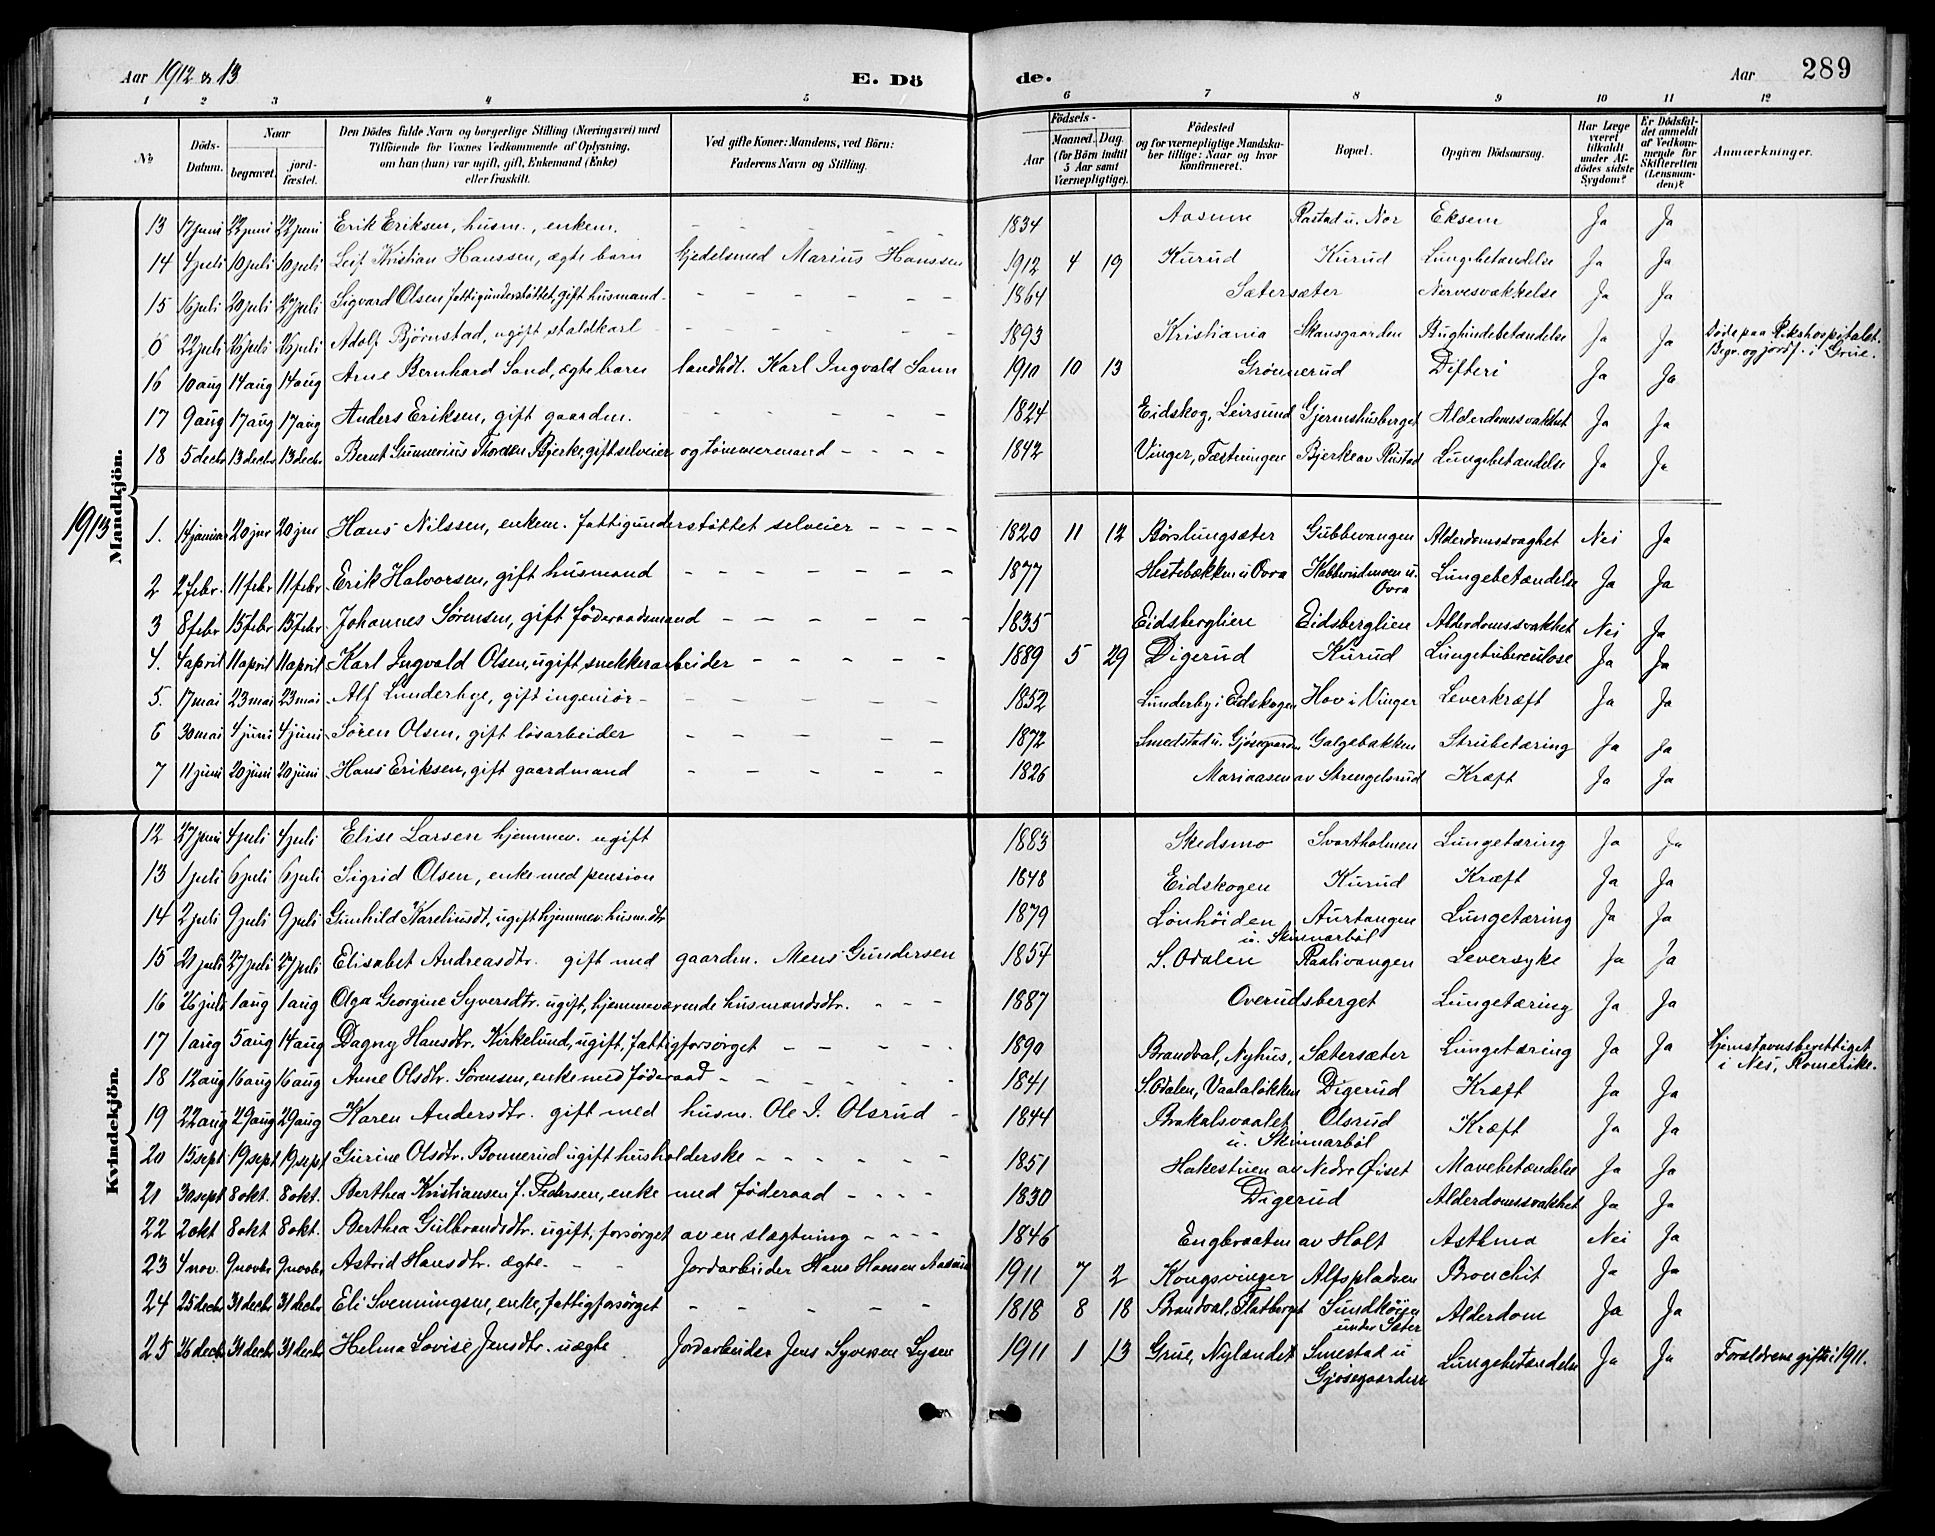 Aar 1912 & 13 E. Dö de. Aar 289
1 2 3 4 5 6 7 8 9 10 11 12
No Döds-Datum. Naar begravet. jord-fæstet. Den Dödes fulde Navn og borgerlige Stilling (Næringsvei) med Tilföiende for Voxnes Vedkommende af Oplysning, om han (hun) var ugift, gift, Enkemand (Enke) eller fraskilt. Ved gifte Koner: Mandens, ved Börn: Faderens Navn og Stilling. Födsels- Aar Maaned. Dag. (for Börn indtil 5 Aar samt Værnepligtige). Födested og for værnepligtige Mandskaber tillige: Naar og hvor konfirmeret. Bopæl. Opgiven Dödsaarsag. Har Læge været tilkaldt under Afdödes sidste Sygdom? Er Dödsfaldet anmeldt af Vedkommende for Skifteretten (Lensmanden)? Anmærkninger.
Mandkjön.
13 17 juni 22 juni 22 juni Erik Eriksen, husm., enkem. - - - - - 1834 Aasum Rastad u. Nor Eksem Ja Ja
14 4 juli 10 juli 10 juli Leif Kristian Hanssen, ægte barn Gjedelsmed Marius Hanssen 1912 4 19 Kurud Kurud Lungebetændelse Ja Ja
15 16 juli 20 juli 27 juli Sigvard Olsen fattigunderstøttet, gift husmand - - - - - - 1864 Sætersæter Nervesvækkelse Ja Ja
6 22 juli 26 juli 26 juli Adolf Bjørnstad, ugift staldkarl - - - - - - 1893 Kristiania Skansgaarden Bughindebetændelse Ja Ja Døde paa Rikshospitalet. Begr. og jordf. i Grue.
16 10 aug 14 aug 14 aug Arne Bernhard Sand, ægte barn landhdl. Karl Ingvald Sann 1910 10 13 Grønnerud Difteri Ja Ja
17 9 aug 17 aug 17 aug Anders Eriksen, gift gaardm. - - - - - - 1824 Eidskog, Leirsund Gjermshusberget Alderdomssvakhet Ja Ja
18 5 decbr 13 decbr 13 decbr Bernt Gunnerius Thorsen Bjerke, gift selveier og tømmermand - - - - 1842 Vinger, Fæstningen Bjerke av Rustad Lungebetændelse Ja Ja
1913
1. 14 januar 20 jnr 20 jnr Hans Nilssen, enkem. fattigunderstøttet selveier - - - - 1820 11 12 Børslungsæter Gubbevangen Alderdomssvaghet Nei Ja
2 2 febr. 11 febr 11 febr Erik Halvorsen, gift husmand - - - - - - - 1877 Hestebækken u Ovra Kabberudmoen u. Ovra Lungebetændelse Ja Ja
3 8 febr 15 febr 15 febr Johannes Sørensen, gift føderaadsmand - - - - - - 1835 Eidsberglien Eidsberglien Alderdomssvakhet Nei Ja
4. 4 april 11 april 11 april Karl Ingvald Olsen, ugift, snekkerarbeider - - - - - 1889 5 29 Digerud Kurud Lungetuberculose Ja Ja
5. 17 mai 23 mai 23 mai Alf Lunderbye, gift ingeniør - - - - - - - 1852 Lunderby i Eidskogen Hov i Vinger Leverkræft Ja Ja
6 30 mai 4 juni 4 juni Søren Olsen, gift løsarbeider - - - - - - 1872 Smedstad u. Gjøsegaarden Galgebakken Strubetæring Ja Ja
7 11 juni 20 juni 20 juni Hans Eriksen, gift gaardmand - - - - - - 1826 Mariaasen av Strengelsrud Kræft Ja Ja
Kvindekjön.
12 27 juni 4 juli 4 juli Elise Larsen hjemmev. ugift 1883 Skedsmo Svartholmen Lungetæring Ja Ja
13 1 juli 6 juli 6 juli Sigrid Olsen, enke med pension 1848 Eidskogen Kurud Kræft Ja Ja
14 2 juli 9 juli 9 juli Gunhild Kareliusdt, ugift hjemmev. husm.dtr 1879 Lønhøiden Aurtangen u. Skinnarbøl Lungetæring Ja Ja
15 21 juli 27 juli 27 juli Elisabet Andreasdtr. gift med gaardm. Mens Gundersen 1854 S. Odalen Raalivangen Leversyke Ja Ja
16 26 juli 1 aug 1 aug Olga Georgine Syversdtr. ugift, hjemmeværende husmandsdtr. - - - 1887 Overudsberget Lungetæring Ja Ja
17 1 aug 5 aug 14 aug Dagny Hansdtr. Kirkelund, ugift, fattigforsørget - - - - - 1890 Brandval, Nyhus, Sætersæter Lungetæring Ja Ja Hjemstavnsberettiget i Nes, Romerike.
18 12 aug 16 aug 16 aug Anne Olsdtr. Sørensen, enke med føderaad - - - - - - 1841 S. Odalen, Vaalaløkken Digerud Kræft Ja Ja
19 22 aug 29 aug 29 aug Karen Andersdtr. gift med husm. Ole I. Olsrud - 1844 Brakalsvaalet Olsrud u. Skinnarbøl Kræft Ja Ja
20 15 sept 19 sept 19 sept Gurine Olsdtr. Bonnerud ugift husholderske - - - - - - 1851 Hakestuen av Nedre Øiset Mavebetændelse Ja Ja
21 30 sept 8 okt. 8 okt. Berthea Kristiansen f. Pedersen, enke med føderaad - - - - 1830 Digerud Alderdomssvakhet Ja Ja
22 2 okt 8 okt 8 okt. Berthea Gulbrandsdtr. ugift, forsørget av en slægtning - - - - 1846 Engbraaten av Holt Asthma Nei Ja
23 4 nov. 9 novbr 9 novbr Astrid Hansdtr. ægte - - Jordarbeider Hans Hansen Aasum 1911 7 2 Kongsvinger Alfspladsen Bronchit Ja Ja
24 25 decbr 31 decbr 31 decbr Eli Svenningsen, enke, fattigforsørget - - - - - - 1818 8 18 Brandval, Flatberget Sundkøien under Sæter Alderdom Ja Ja
25 26 decbr 31 decbr 31 decbr Helma Lovise Jensdtr. uægte Jordarbeider Jens Syversen Lysen 1911 1 13 Grue, Nylændet Smestad u Gjøsegaarden Lungebetændelse Ja Ja Forældrene gifte i 1911.